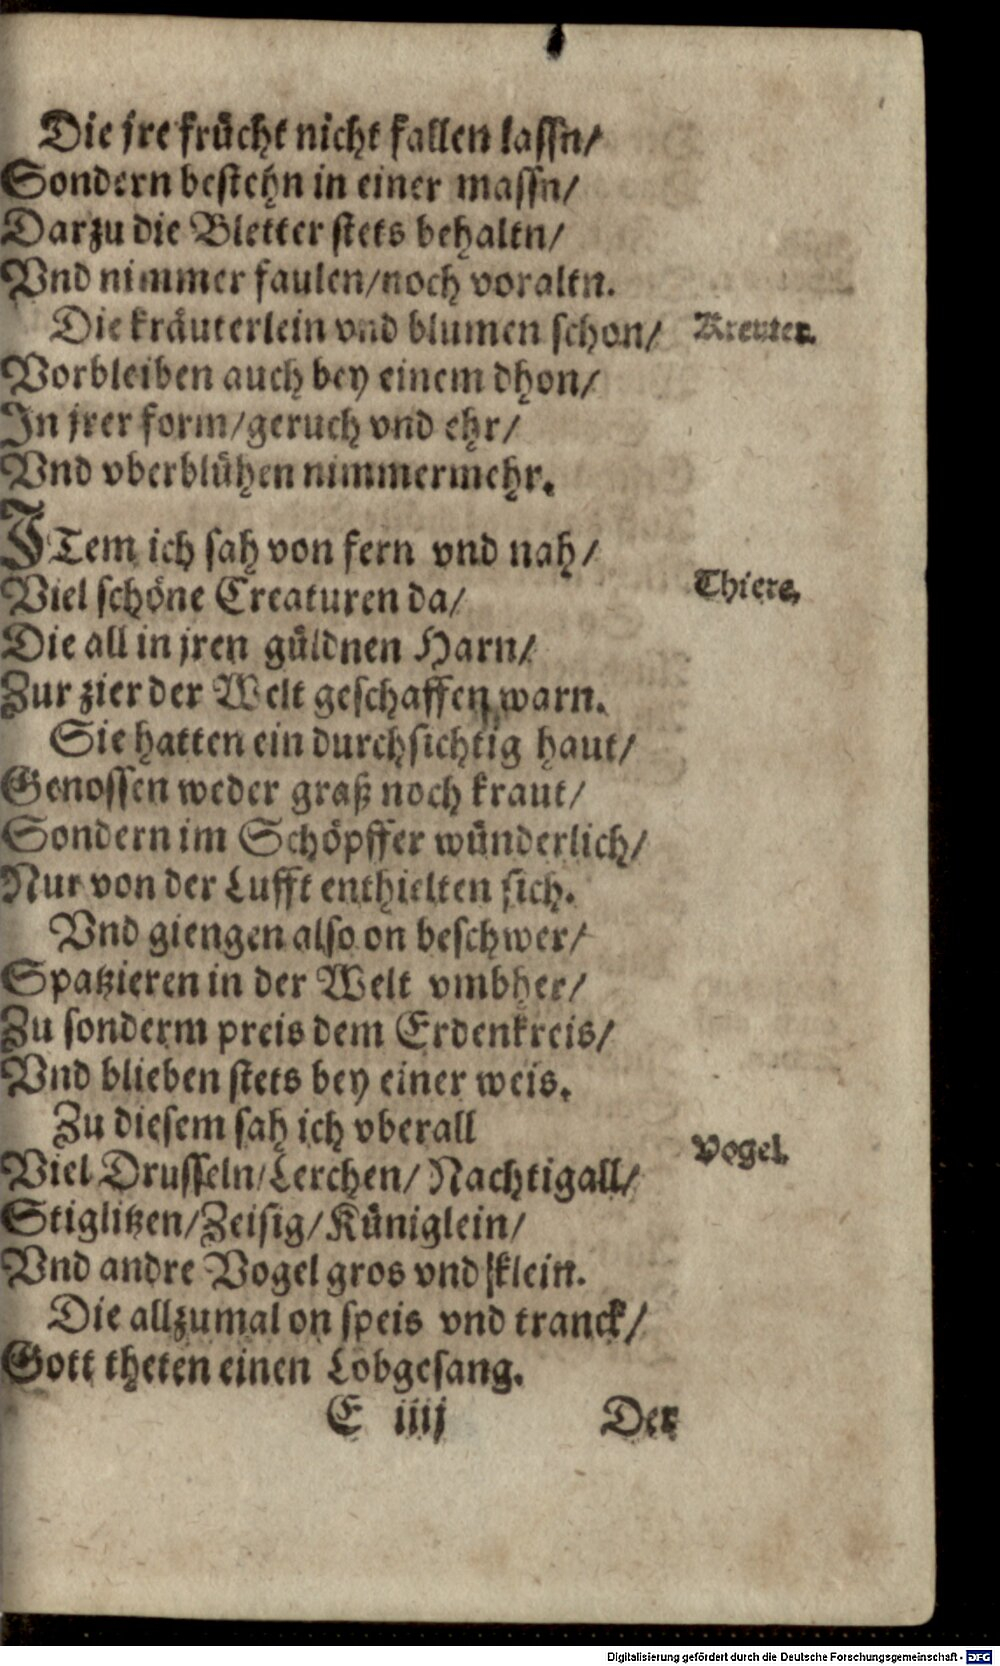 Die jre frücht nicht fallen lassn/
Sondern bestehn in einer massn/
Darzu die Bletter stets behaltn/
Vnd nimmer faulen/noch voraltn.
Die kräuterlein vnd blumen schon/ Kreuter.
Vorbleiben auch bey einem dhon/
In jrer form/geruch vnd ehr/
Vnd vberblühen nimmermehr.
ITem ich sah von fern vnd nah/
Viel schöne Creaturen da/ Thiere.
Die all in jren güldnen Harn/
Zur zier der Welt geschaffen warn.
Sie hatten ein durchsichtig haut/
Genossen weder graß noch kraut/
Sondern im Schöpffer wünderlich/
Nur von der Lufft enthielten sich.
Vnd giengen also on beschwer/
Spatzieren in der Welt vmbher/
Zu sonderm preis dem Erdenkreis/
Vnd blieben stets bey einer weis.
Zu diesem sah ich vberall
Viel Drusseln/Lerchen/Nachtigall/ Vogel.
Stiglitzen/Zeisig/Küniglein/
Vnd andre Vogel gros vnd klein.
Die allzumal on speis vnd tranck/
Gott theten einen Lobgesang.
E iiij Der
Digitalisierung gefördert durch die Deutsche Forschungsgemeinschaft - DFG